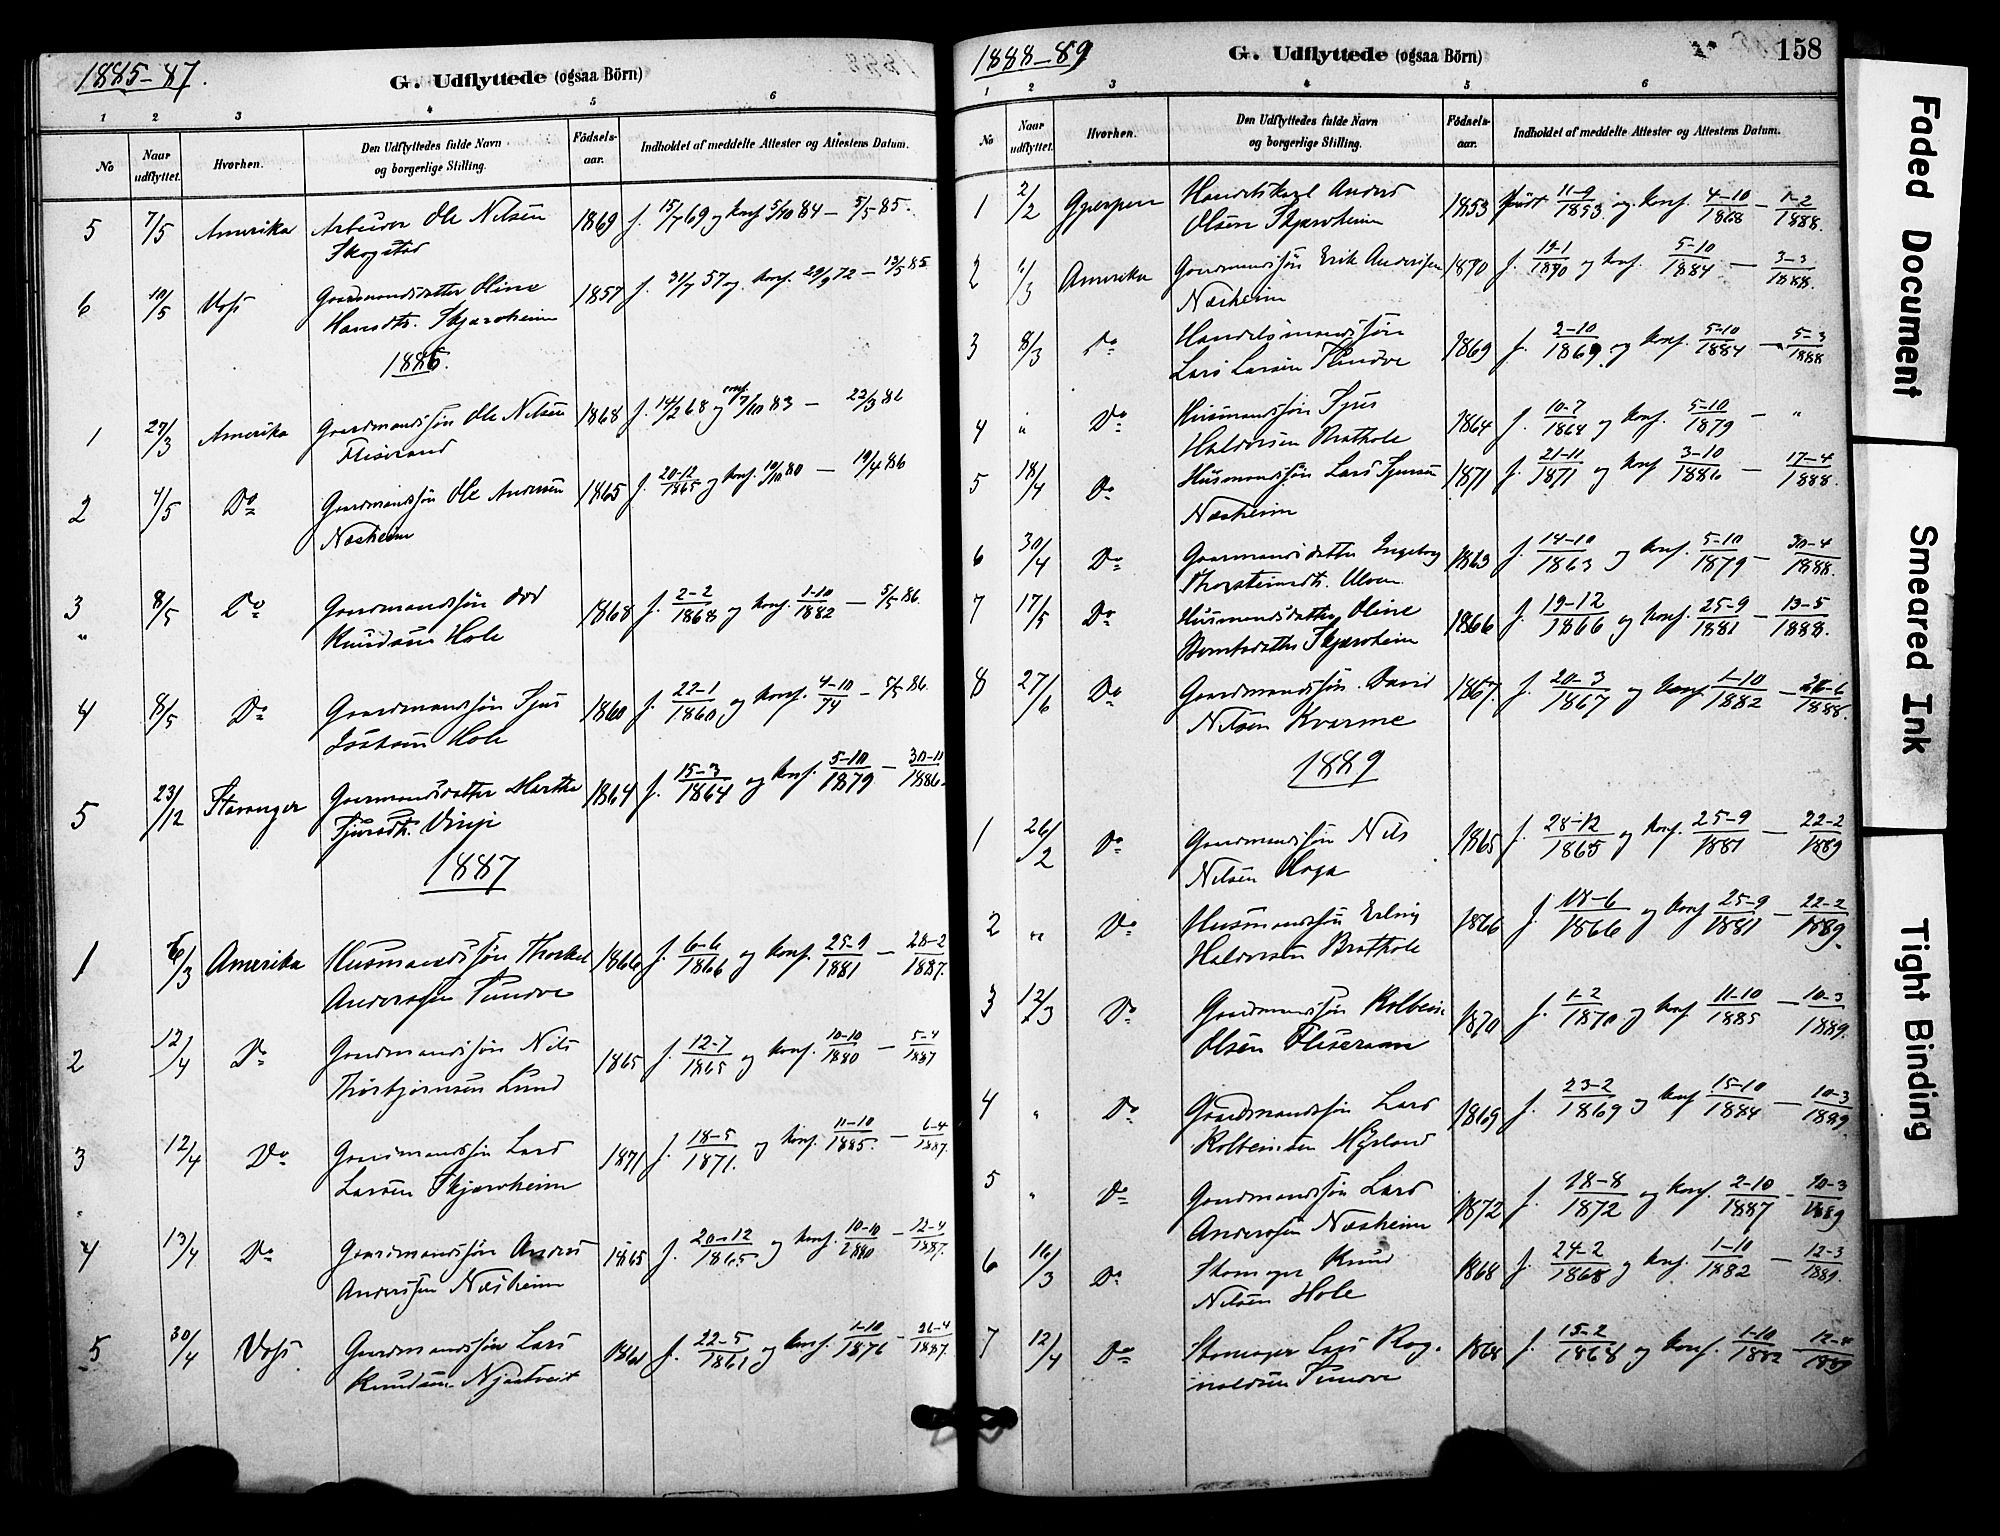 1885-87.
G. Udflyttede (ogsaa Börn)
1 2 3 4 5 6
No Naar udflyttet. Hvorhen. Den Udflyttedes fulde Navn og borgerlige Stilling. Födselsaar. Indholdet af meddelte Attester og Attestens Datum.
5 7/5 Amerika Arbeider Ole Nilsen 1869 f. 15/7 69 og konf. 5/10 84 - 5/5 85.
Skogstad
6 10/5 Voss Gaardmandsdatter Oline 1857 f. 31/7 57 og konf. 29/9 72 - 13/5 85
Skjærvheim
1886.
1 27/3 Amerika Gaardmandssøn Ole Nilsen 1868 f. 14/2 68 og konf. 7/10 83 - 22/3 86
Fliseram
2 4/5 Do Gaardmandssøn Ole Andersen 1865 f. 20-12/1865 og konf. 10/10 80 - 19/4 86
Næsheim
3 8/5 Do Gaardmandssøn Odd 1868 f. 2-2/1868 og konf. 1-10/1882 - 5/5 86.
" Knudsen Hole
4 8/5 Do Gaardmandssøn Sjur 1860 f. 22-1/1860 og konf. 4-10/74 - 5/5 86.
Hole
5 23/12 Stavanger Gaarmandsdatter Martha 1864 f. 15-3/1864 og konf. 5-10/1879 - 30-11/1886.
Sjursdt. Vinje
1887
1 6/3 Amerika Husmandssøn Thorkel 1866 f. 6-6/1866 og konf. 25-9/1881 - 28-2/1887.
Anderssen Tundve
2 12/4 Do Gaardmandssøn Nils 1865 f. 12-7/1865 og konf. 10-10/1880 - 5-4/1887
Thorbjørnsen Lund
3 12/4 Do Gaardmandssøn Lars 1871 f. 18-5/1871. og konf. 11-10/1885. - 6-4/1887.
Larsen Skjærvheim
4 13/4 Do Gaardmandssøn Anders 1865 f. 20-12/1865 og konf. 10-10/1880 - 12-4/1887.
Anderssen Næsheim
5 30/4 Voss Gaardmandssøn Lars 1861 f. 22-5/1861 og konf. 1-10/1876 - 26-4/1887.
Knudsen Njaastveit
1888-89
G. Udflyttede (ogsaa Börn)
158
1 2 3 4 5 6
No Naar udflyttet. Hvorhen. Den Udflyttedes fulde Navn og borgerlige Stilling. Födselsaar. Indholdet af meddelte Attester og Attestens Datum.
1 2/2 Gjerpen Handelskarl Anders 1853 født 11-9/1853. og konf. 4-10/1868 - 1-2/1888.
Olsen Skjærvheim
2 1/3 Amerika Gaardmandssøn Erik Anderssen 1870 f. 19-1/1870 og konf. 5-10/1884 - 3-3/1888.
Næsheim
3 8/3 Do Handelsmandssøn 1869 f. 2-10/1869. og konf. 5-10/1884 - 5-3/1888
Lars Larsen Tundve
4 " Do Husmandssøn Sjur 1864 f. 10-7/1864 og konf. 5-10/1879 - "
Haldorsen Brathole
5 18/4 Do Husmandssøn Lars Sjursen 1871 f. 21-11/1871 og konf. 3-10/1886 - 17-4/1888.
Næsheim
6 30/4 Do Gaarmandsdatter Ingeborg 1863 f. 14-10/1863 og konf. 5-10/1879 - 30-4/1888.
Thorsteinsdt. Ulven
7 17/5 Do Husmandsdatter Oline 1866 f. 19-12/1866 og konf. 25-9/1881 - 13-5/1888.
Skjærvheim
8 27/6 Do Gaardmandssøn David 1867. f. 20-3/1867 og konf. 1-10/1882 - 26-6/1888.
Nilsen Kvarme
1889
1 26/2 Do Gaardmandssøn Nils 1865 f. 28-12/1865 og konf. 25-9/1881 - 22-2/1889
Nilsen Haga
2 " Do Husmandssøn Erling 1866 f. 18-6/1866 og konf. 25-9/1881 - 22-2/1889.
Haldorsen Brathole
3 12/3 Do Gaardmandssøn Kolbein 1870 f. 1-2/1870 og konf. 11-10/1885 - 10-3/1889.
Olsen Fliseram
4 " Do Gaardmandssøn Lars 1869 f. 23-2/1869 og konf. 15-10/1884 - 10-3/1889.
Kolbeinsen Myrland
5 " Do Gaardmandssøn Lars 1872 f. 28-8/1872 og konf. 2-10/1887 - 10-3/1889
Anderssen Næsheim
6 16/3 Do Skomager Knud 1868 f. 24-2/1868 og konf. 1-10/1882 - 12-3/1889.
Nilsen Hole
7 12/4 Do Skomager Lars Rog- 1868 f. 15-2/1868 og konf. 1-10/1882 - 12-4/1889
noldsen Tundve
Faded Document
Smeared Ink
Tight Binding